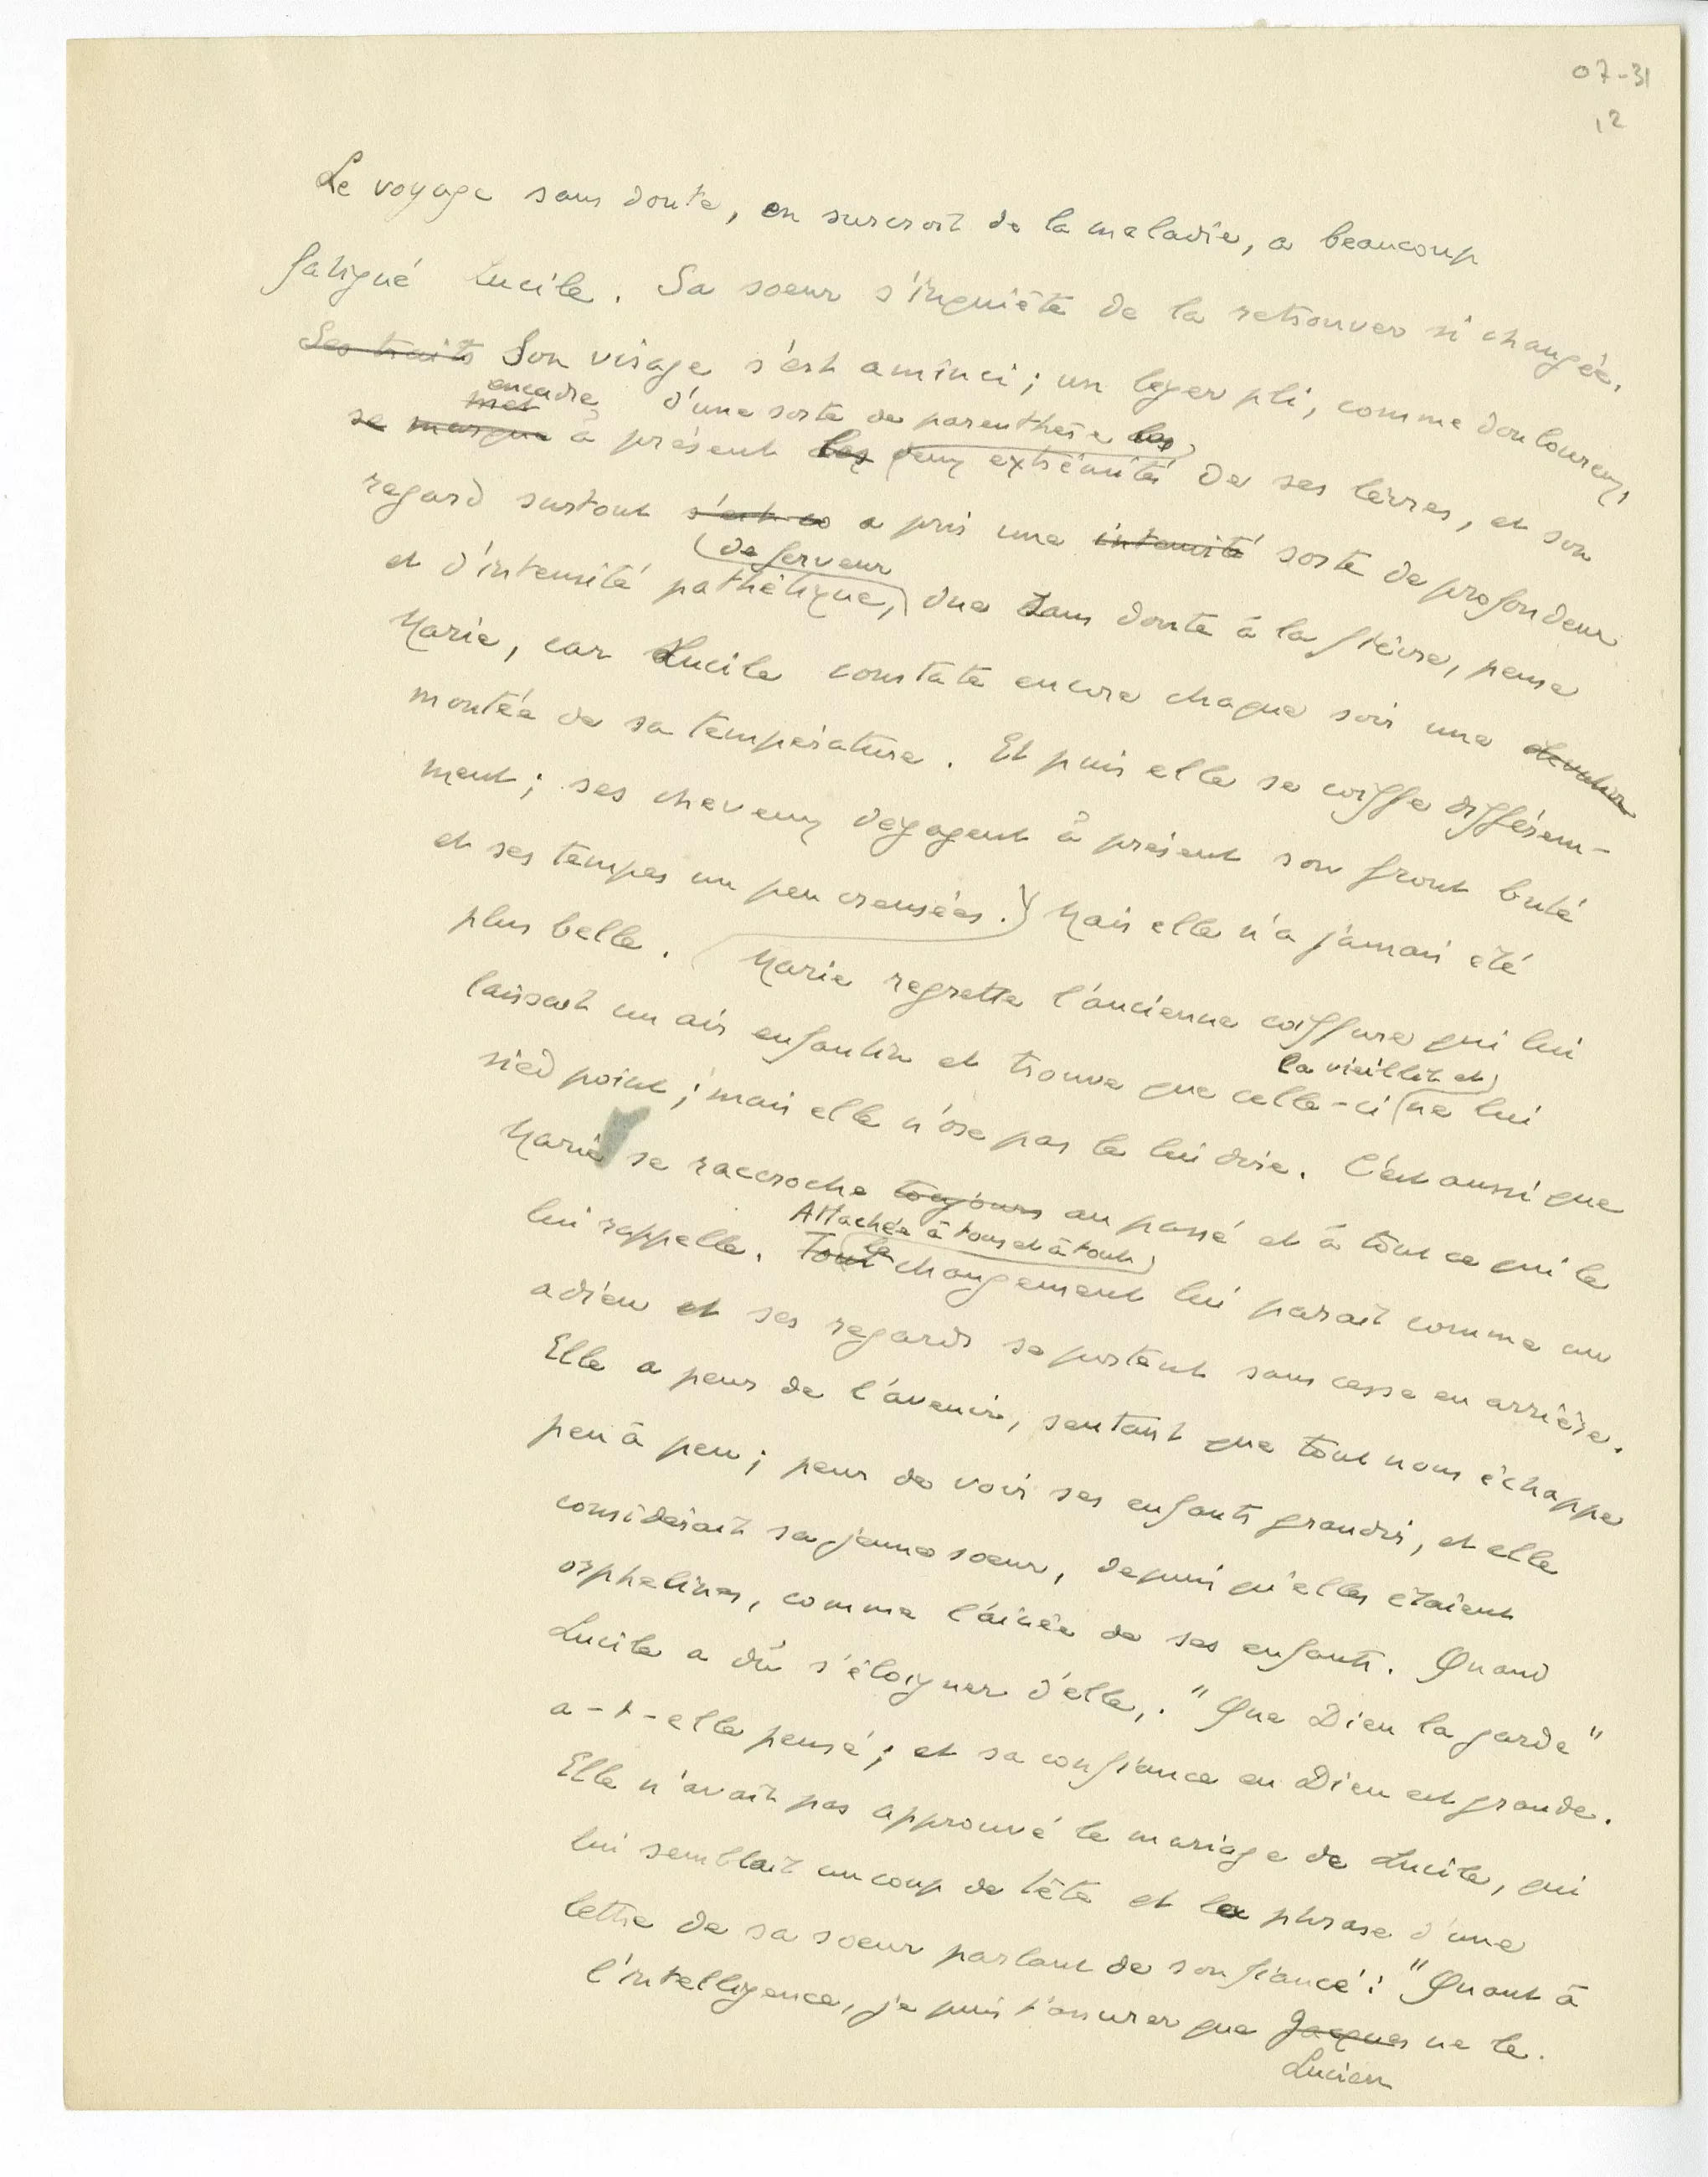 07-31
12
Le voyage sans doute, en surcroît de la maladie, a beaucoup
fatigué Lucile. Sa soeur s'inquiète de la retrouver si changée.
Ses traits Son visage s'est aminci ; un léger pli, comme douloureux,
encadre d'une sorte de parenthèse les
met
se marque à présent les deux extrémités de ses lèvres, et son
regard surtout s'est co a pris une intensité sorte de profondeur
de ferveur
et d'intensité pathétique, due sans doute à la fièvre, pense
Marie, car Lucile constate encore chaque soir une
montée de sa température. Et puis elle se coiffe différem-
ment ; ses cheveux dégagent à présent son front buté
et ses tempes un peu creusées. Mais elle n'a jamais été
plus belle. Marie regrette l'ancienne coiffure qui lui
laissait un air enfantin et trouve que celle-ci ne lui
la vieillit et
sied point ; mais elle n'ose pas le lui dire. C'est aussi que
Marie se raccroche toujours au passé et à tout ce qui le
Attachée à tous et à tout
lui rappelle. Tout le changement lui paraît comme un
adieu et ses regards se portent sans cesse en arrière.
Elle a peur de l'avenir, sentant que tout nous échappe
peu à peu ; peur de voir ses enfants grandir, et elle
considérait sa jeune soeur, depuis qu'elles étaient
orphelines, comme l'aînée de ses enfants. Quand
Lucile a dû s'éloigner d'elle,. "Que Dieu la garde"
a-t-elle pensé ; et sa confiance en Dieu est grande.
Elle n'avait pas approuvé le mariage de Lucile, qui
lui semblait un coup de tête et la phrase d'une
lettre de sa soeur parlant de son fiancé : "Quant à
l'intelligence, je puis t'assurer que Jacques ne le.
Lucien